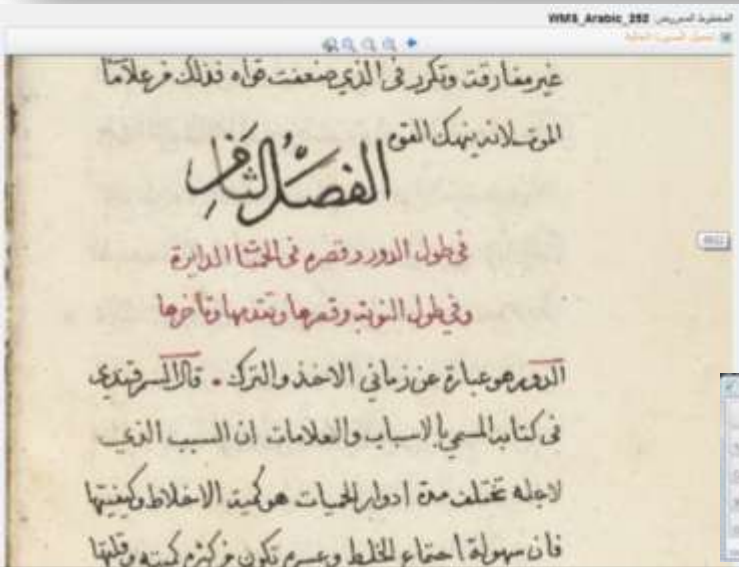 المخطوط المعروض: WMS_Arabic_252
تحميل الصورة الحالية
غير مفارقة وتكرر فى الذي ضعفت قواه فذلك من علامات
الموت لانه ينهك القوه
الفصل الثاني
فى طول الدور وقصره فى الحميات الدايرة
وفى طول النوبة وقصرها وتقدمها وتاخرها
الدور هو عبارة عن زماني الاخذ والترك . قال السمرقندى
فى كتابه المسمي بالاسباب والعلامات ان السبب الذى
لاجله تختلف مدة ادوار الحميات هو كمية الاخلاط وكيفيتها
فان سهولة اجتماع الخلط وعسره تكون من كثرة كميته وقلتها